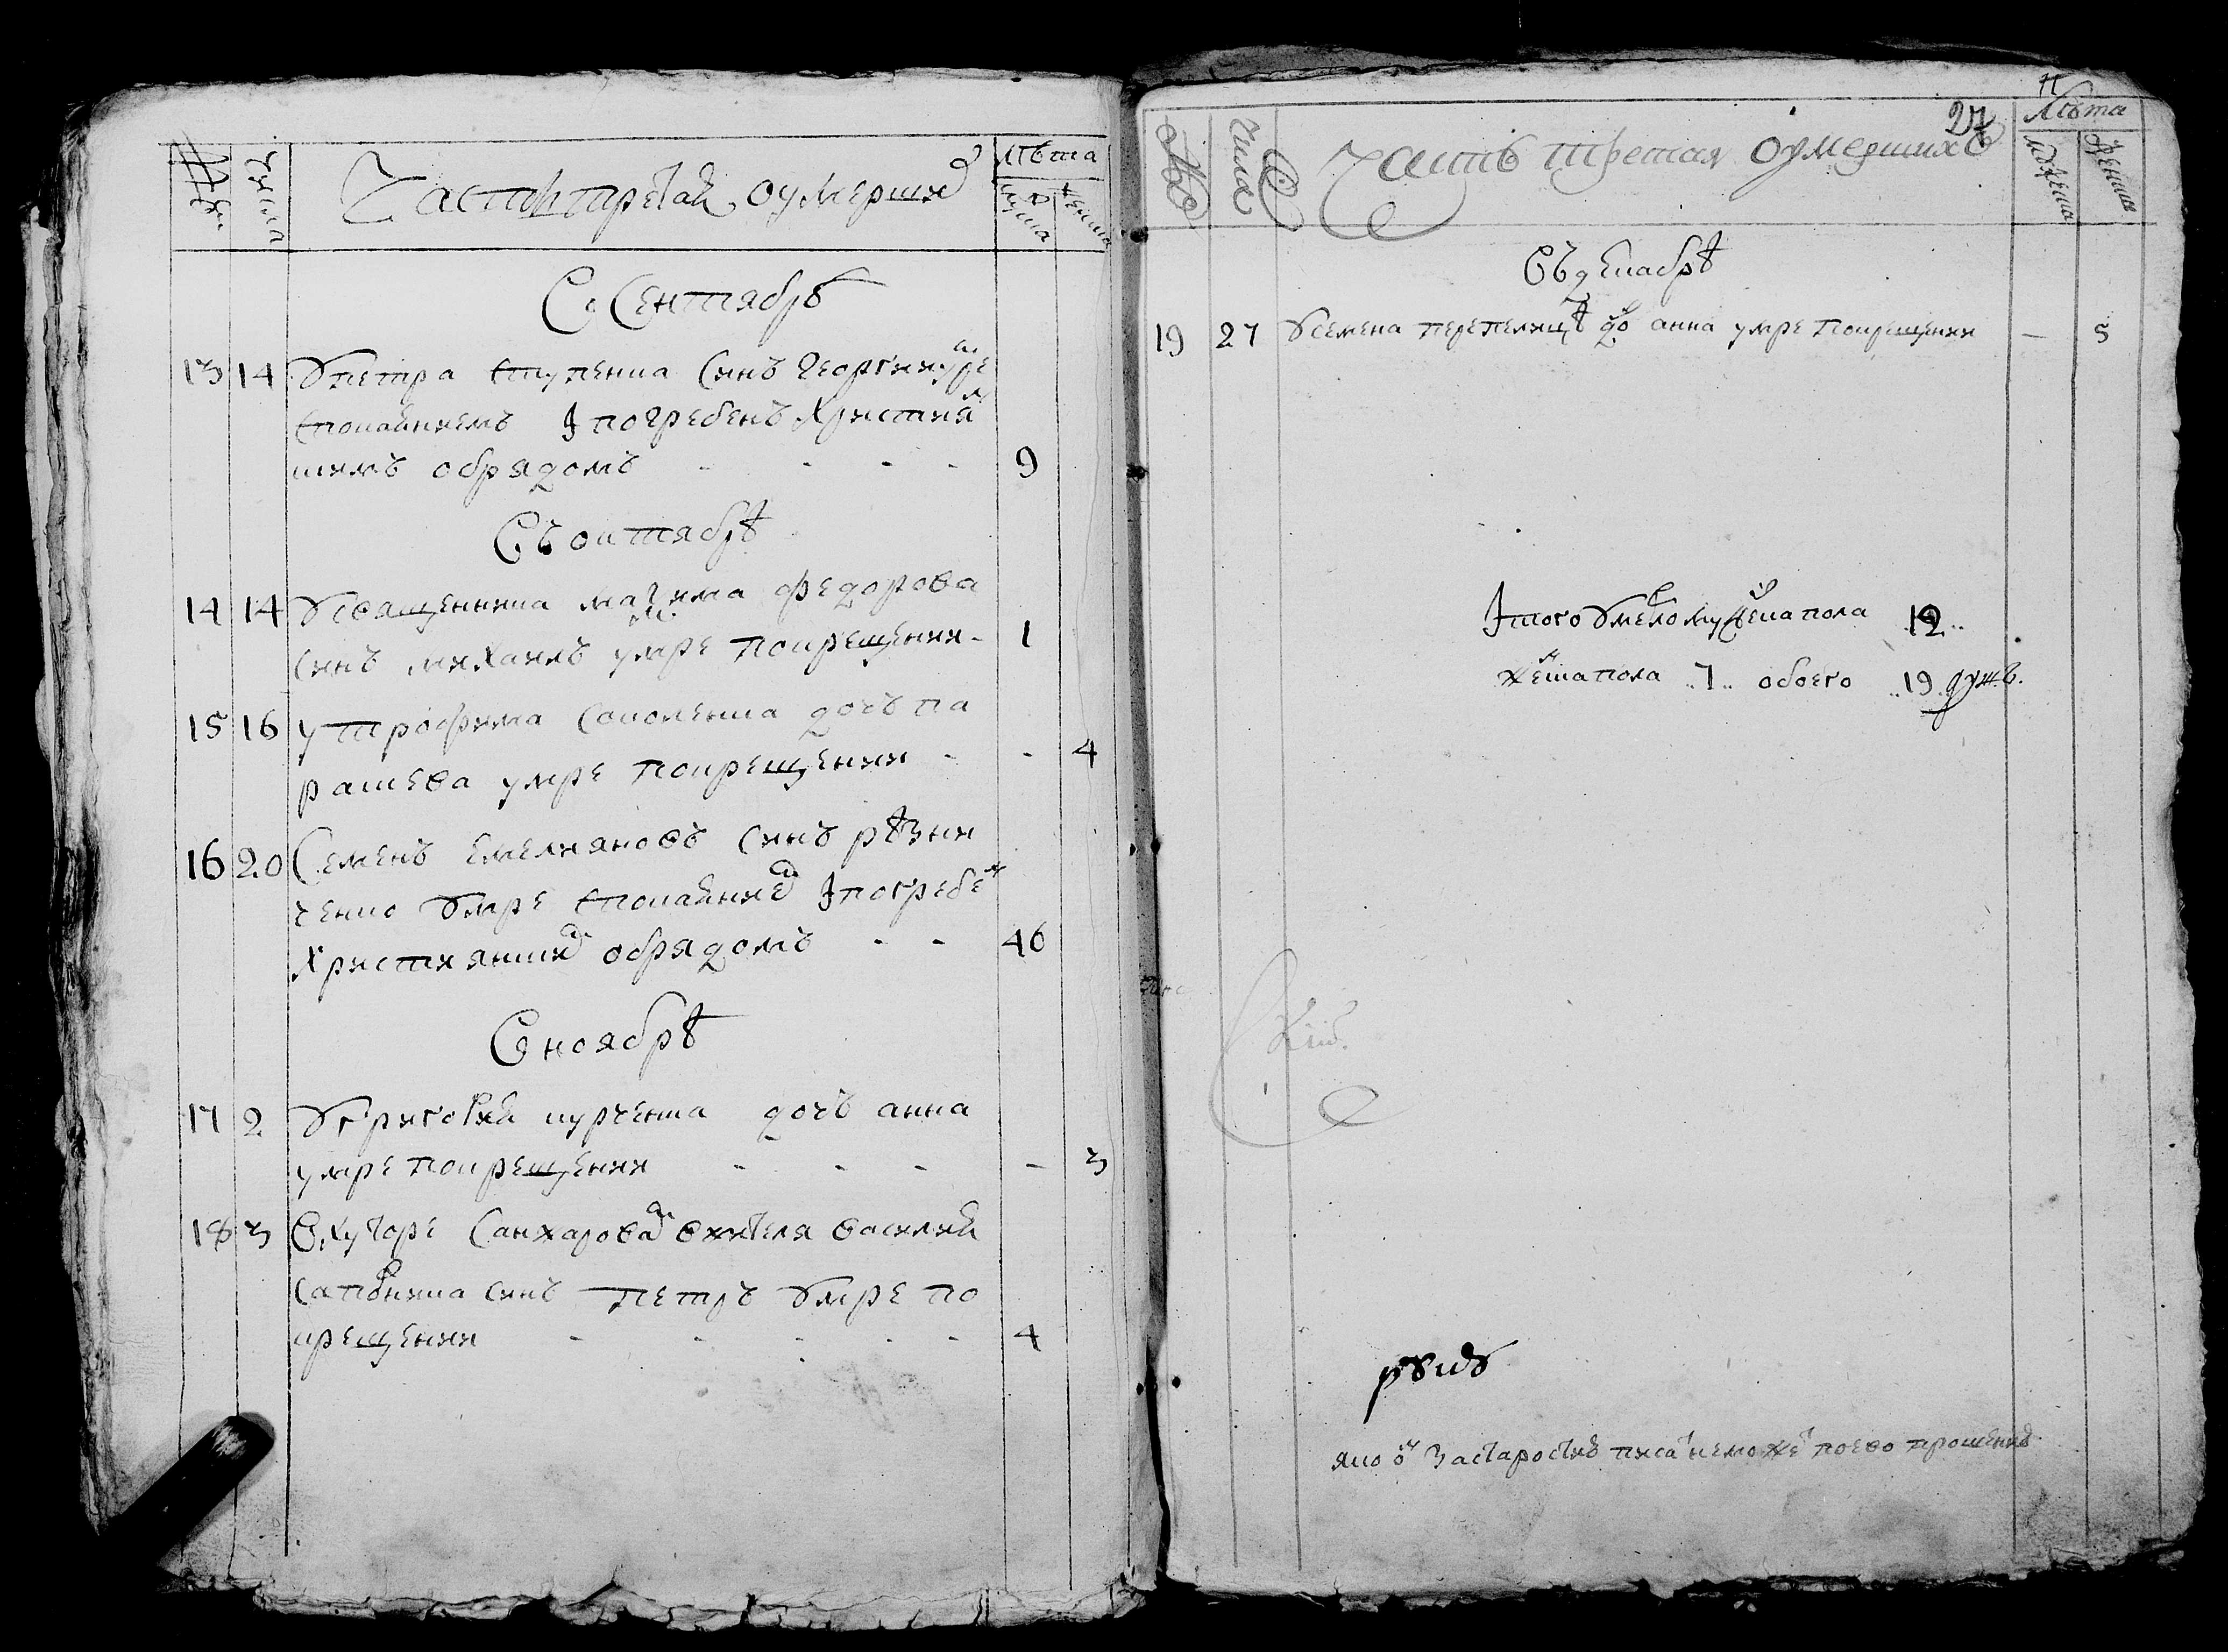 Часть третая оумершихъ
лѣта
Въ Сентябрѣ
13 14 Упетра ступенка синъ Георгии умре
споканиемъ і погребенъ Християн
скимъ обрядомъ - - - - 9
Въ октябрѣ
14 14 Усвященника максима федорова
синъ михаилъ умре покрещении - 1
15 16 у трофима соколенка дочъ па
раскева умре покрещении - - 4
16 20 Семенъ емелияновъ синъ рѣзни
ченко умре споканиемъ і погребен
християнскимъ обрядомъ - - 46
В ноябрѣ
17 2 Угригория курченка дочъ анна
умре покрещении - - - - 3
18 3 В хуторе санжаровом жителя василия
сапоника синъ петръ умре по
крещении - - - - - 4
27
числа
Часть третая оумершихъ
лѣта
Въ декабрѣ
19 27 Усемена перепелицѣ дочъ анна умре покрещении - 5
Ітого мужеска пола 12
женска пола 7 обоего 19 душъ.
яко он за старостию писат не може по ево прошению